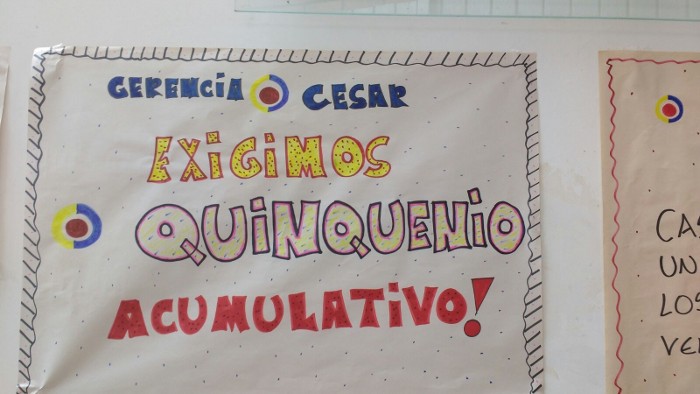 GERENCIA CESAR
EXIGIMOS
QUINQUENIO
ACUMULATIVO!
UN